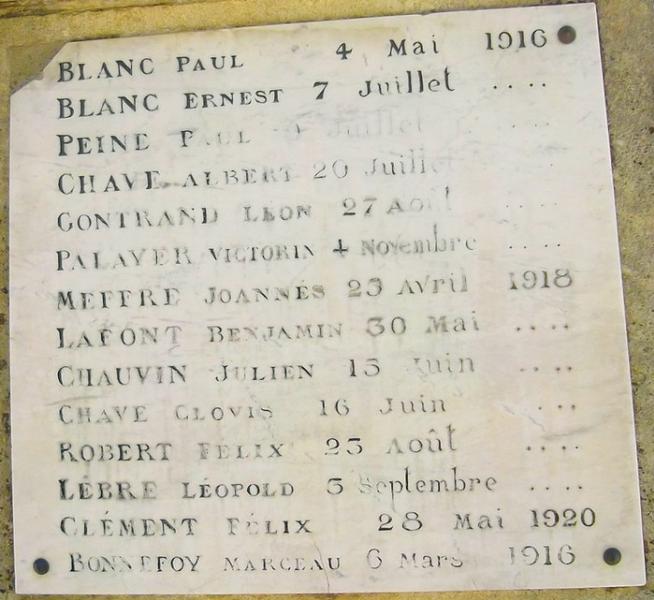 BLANC PAUL 4 Mai 1916
BLANC ERNEST 7 Juillet ....
PEINE PAUL Juillet ....
CHAVE ALBERT 20 Juillet
GONTRAND LEON 27 Août ....
PALAYER VICTORIN 4 Novembre ....
MEFFRE JOANNÉS 23 Avril 1918
LAFONT BENJAMIN 30 Mai ....
CHAUVIN JULIEN 15 Juin ....
CHAVE CLOVIS 16 Juin ...
ROBERT FELIX 23 Août ....
LÈBRE LÉOPOLD 3 Septembre ....
CLÉMENT FÉLIX 28 Mai 1920
BONNEFOY MARCEAU 6 Mars 1916